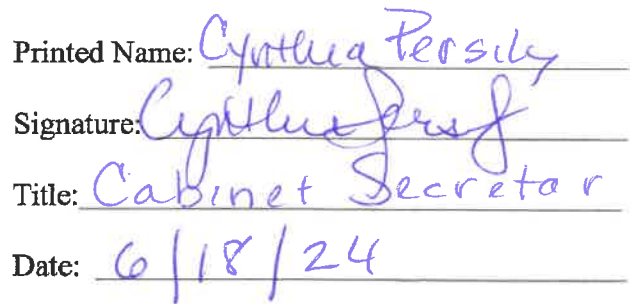 Printed Name: Cynthia Persily
Signature: Cynthia Persily
Title: Cabinet Secretar
Date: 6/18/24